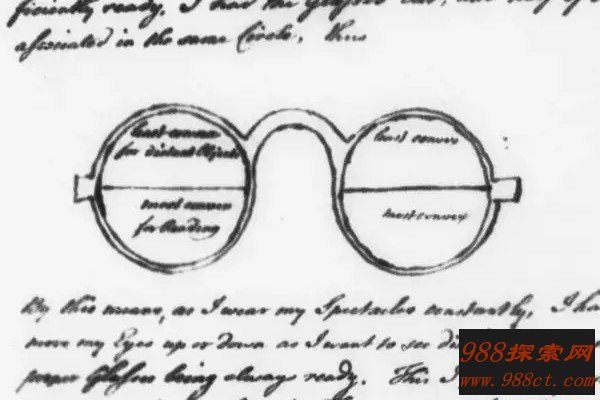 ficiently ready. I had the Glasses cut, and
associated in the same Circle, thus
least convex
for distant Objects
most convex
for Reading
least convex
most convex
By this means, as I wear my Spectacles constantly, I ha
move my Eyes up or down as I want to see di
proper Glasses being always ready. This I
988探索网
www.988ct.com